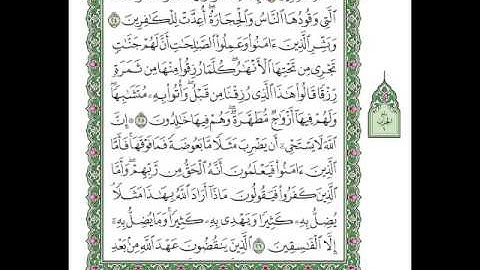 ٱلَّتِى وَقُودُهَا ٱلنَّاسُ وَٱلْحِجَارَةُ ۖ أُعِدَّتْ لِلْكَـٰفِرِينَ ٢٤
وَبَشِّرِ ٱلَّذِينَ ءَامَنُوا۟ وَعَمِلُوا۟ ٱلصَّـٰلِحَـٰتِ أَنَّ لَهُمْ جَنَّـٰتٍ
تَجْرِى مِن تَحْتِهَا ٱلْأَنْهَـٰرُ ۖ كُلَّمَا رُزِقُوا۟ مِنْهَا مِن ثَمَرَةٍ
رِّزْقًا قَالُوا۟ هَـٰذَا ٱلَّذِى رُزِقْنَا مِن قَبْلُ ۖ وَأُتُوا۟ بِهِۦ مُتَشَـٰبِهًا ۖ
وَلَهُمْ فِيهَآ أَزْوَٰجٌ مُّطَهَّرَةٌ ۖ وَهُمْ فِيهَا خَـٰلِدُونَ ٢٥ ۞ إِنَّ
ٱللَّهَ لَا يَسْتَحْىِۦٓ أَن يَضْرِبَ مَثَلًا مَّا بَعُوضَةً فَمَا فَوْقَهَا ۚ فَأَمَّا
ٱلَّذِينَ ءَامَنُوا۟ فَيَعْلَمُونَ أَنَّهُ ٱلْحَقُّ مِن رَّبِّهِمْ ۖ وَأَمَّا
ٱلَّذِينَ كَفَرُوا۟ فَيَقُولُونَ مَاذَآ أَرَادَ ٱللَّهُ بِهَـٰذَا مَثَلًا ۘ
يُضِلُّ بِهِۦ كَثِيرًا وَيَهْدِى بِهِۦ كَثِيرًا ۚ وَمَا يُضِلُّ بِهِۦٓ
إِلَّا ٱلْفَـٰسِقِينَ ٢٦ ٱلَّذِينَ يَنقُضُونَ عَهْدَ ٱللَّهِ مِنۢ بَعْدِ